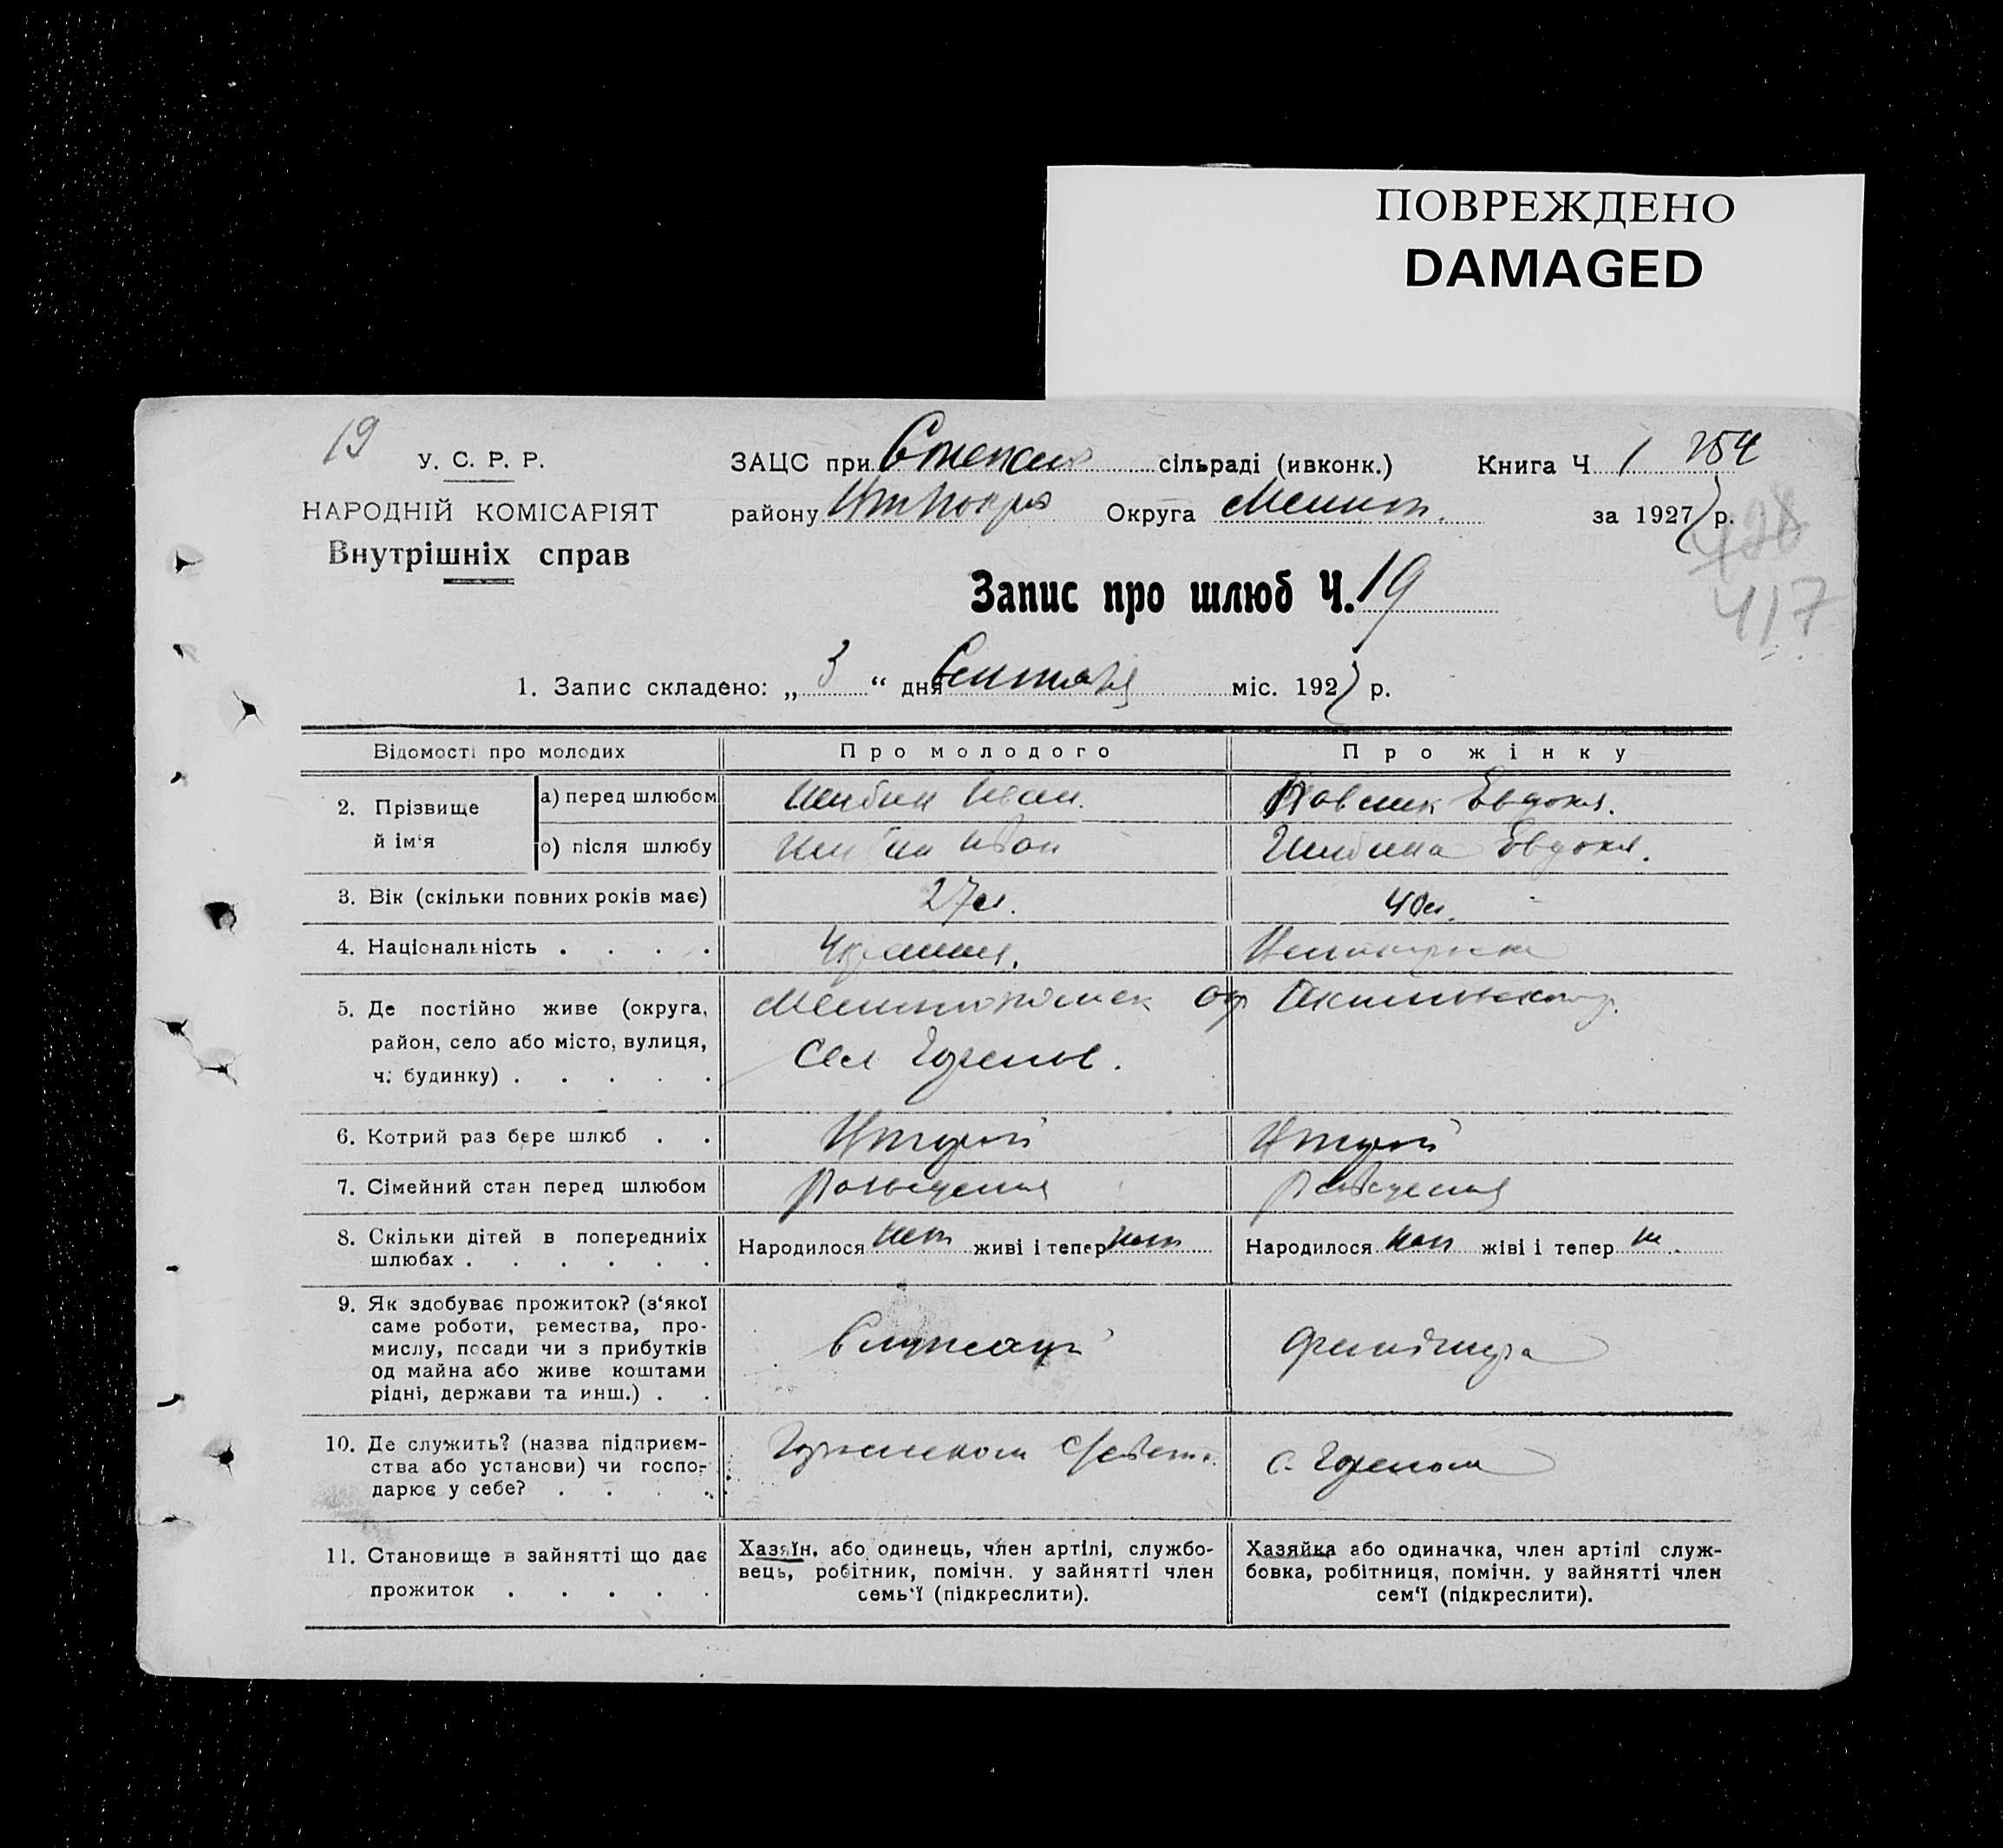 ПОВРЕЖДЕНО
DAMAGED
19
У. С. Р. Р.
НАРОДНІЙ КОМІСАРІЯТ
Внутрішніх справ
ЗАЦС при сільраді (ивконк.) Книга Ч 1 254
району Округа Мелит. за 1927 р.
417
Запис про шлюб Ч. 19
1. Запис складено: „ 3 “ дня Сентября міс. 1927 р.
Відомості про молодих Про молодого Про жінку
2. Прізвище й ім‘я
а) перед шлюбом Шибин Иван. Павлик Евдокя.
о) після шлюбу Шибин Иван Шибина Евдокя.
3. Вік (скільки повних років має) 27 л. 40 л.
4. Національність . . . . Украинц.
5. Де постійно живе (округа, район, село або місто, вулиця, ч: будинку) . . . . .
Мелитопольск ор Акимовского р.
Сел
6. Котрий раз бере шлюб . . Второй Второй
7. Сімейний стан перед шлюбом
8. Скільки дітей в попередниіх шлюбах . . . . . .
Народилося нет живі і тепер нет Народилося нет жіві і тепер
9. Як здобуває прожиток? (з‘якої
саме роботи, ремества, про-
мислу, посади чи з прибутків
од майна або живе коштами
рідні, держави та инш.) . .
Служащі
10. Де служить? (назва підприєм-
ства або установи) чи госпо-
дарює у себе? . . . .
с.
11. Становище в зайнятті що дає
прожиток . . . . .
Хазяїн, або одинець, член артілі, службо-
вець, робітник, помічн. у зайнятті член
семь‘ї (підкреслити).
Хазяйка або одиначка, член артілі служ-
бовка, робітниця, помічн. у зайнятті член
сем‘ї (підкреслити).